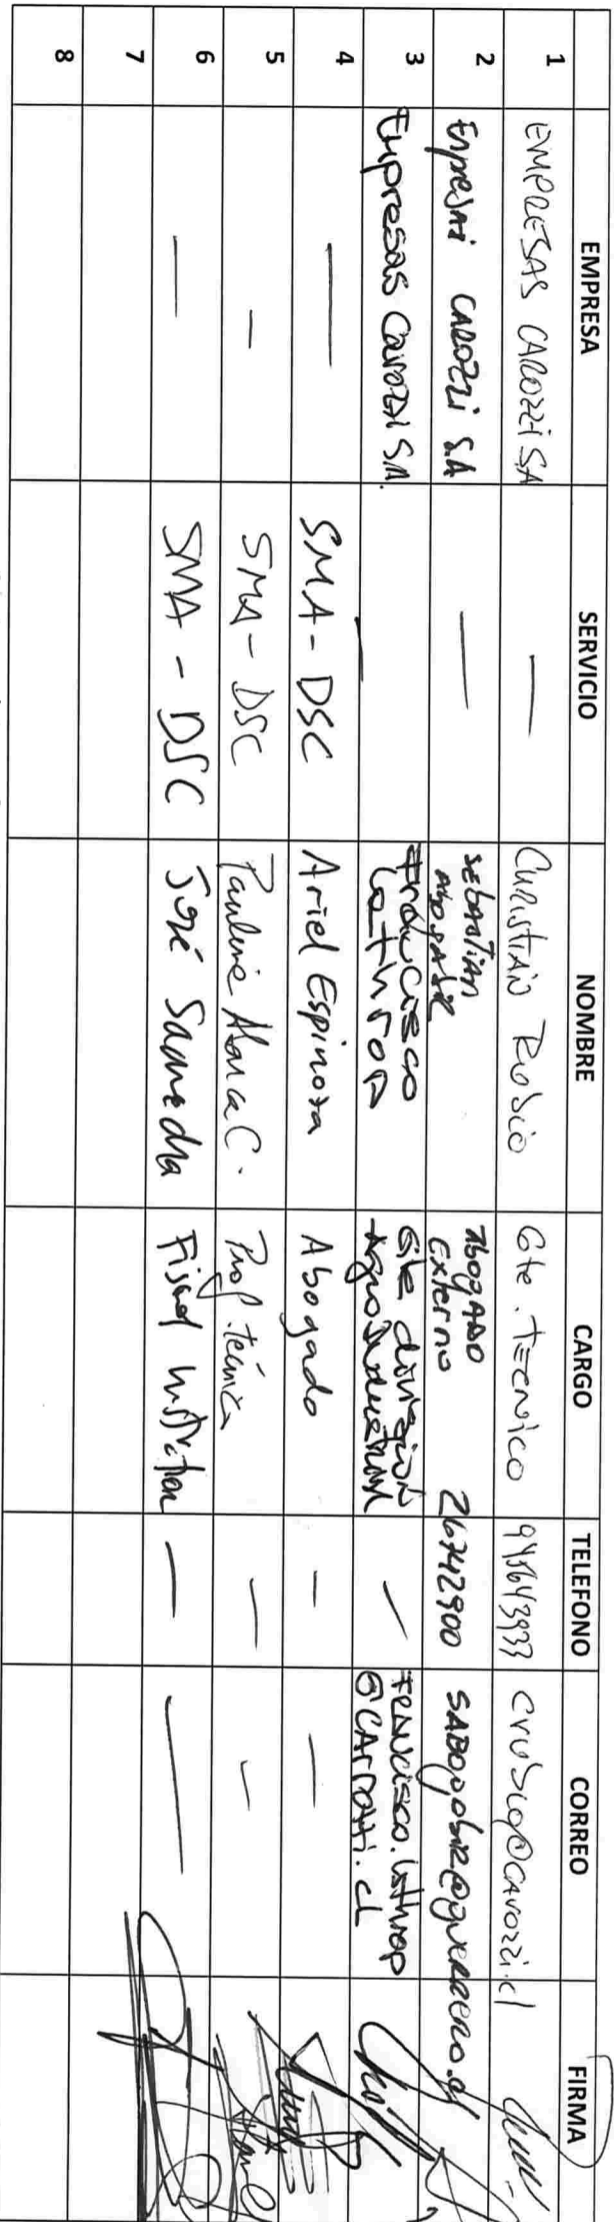 EMPRESA SERVICIO NOMBRE CARGO TELEFONO CORREO FIRMA
1 EMPRESAS CAROZZI SA — Christian Rubio Gte. Tecnico crubio@carozzi.cl
2 Empresas CAROZZI S.A — SEBASTIAN ABOGABIR Abogado Externo 26742900 SABogabir@guerrero.cl
3 Empresas Carozzi S.A. — Francisco Lathrop Gte división Agroindustrial — FRANCISCO.Lathrop
@CAROZZI.cl
4 — SMA - DSC Ariel Espinoza Abogado — —
5 — SMA - DSC Prof. técnica — —
6 — SMA - DSC José Saavedra Fiscal Instructor — —
7
8